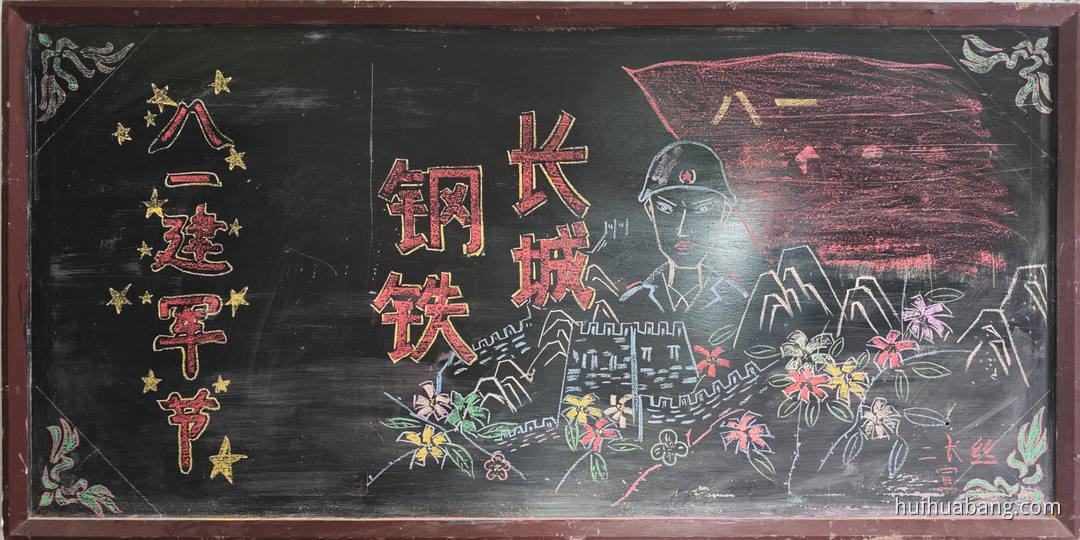 八一建军节
钢铁
长城
八一
二长丝
宣
huihuabang.com